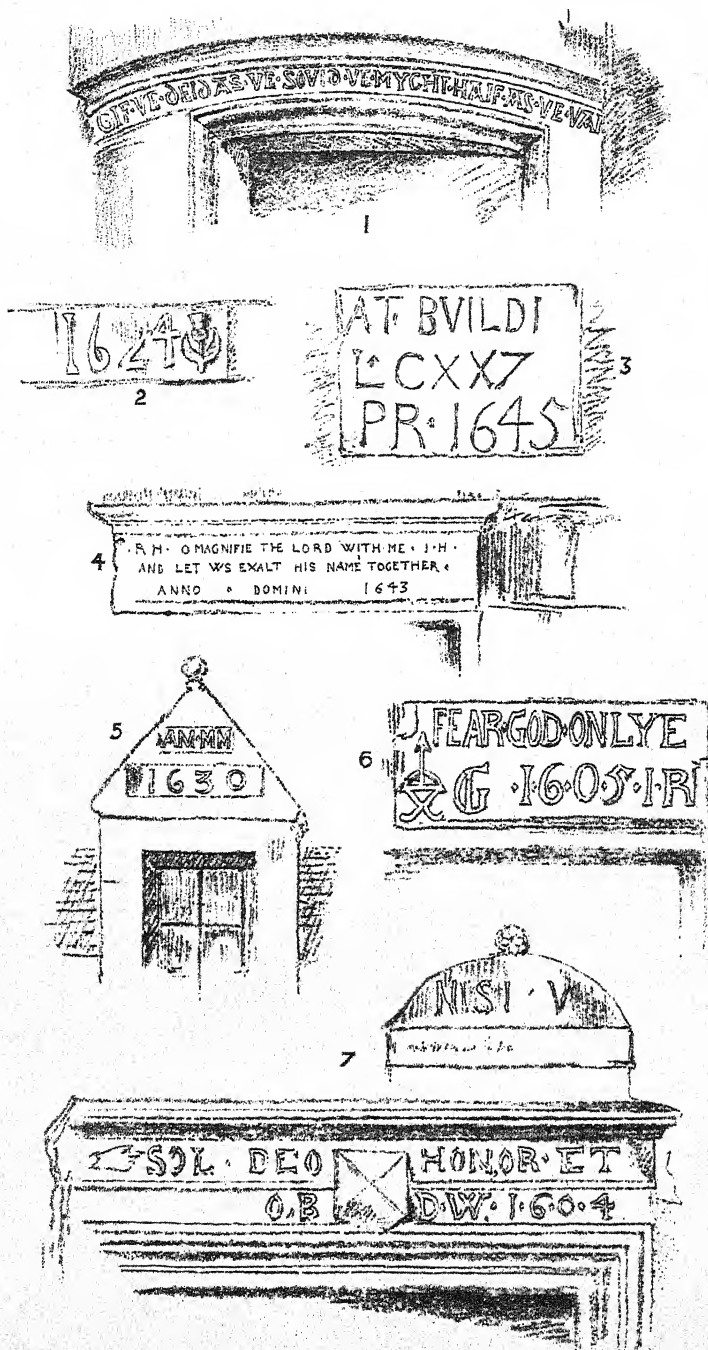 GIF·VE·DEID·AS·VE·SOVID·VE·MYCHT·HAIF·AS·VE·VAL
1
1624
2
AT· BVILDI
L CXX7
PR·1645
3
4
·R H· O MAGNIFIE THE LORD WITH·ME · I·H·
AND LET WS EXALT HIS NAME TOGETHER·
ANNO · DOMINI 1643
5
AM·MM
1630
J FEAR·GOD·ONLYE
6
G ·1·6·0·5·I·R
NISI · V
7
SOL · DEO HONOR·ET
O·B D·W· 1·6·0·4